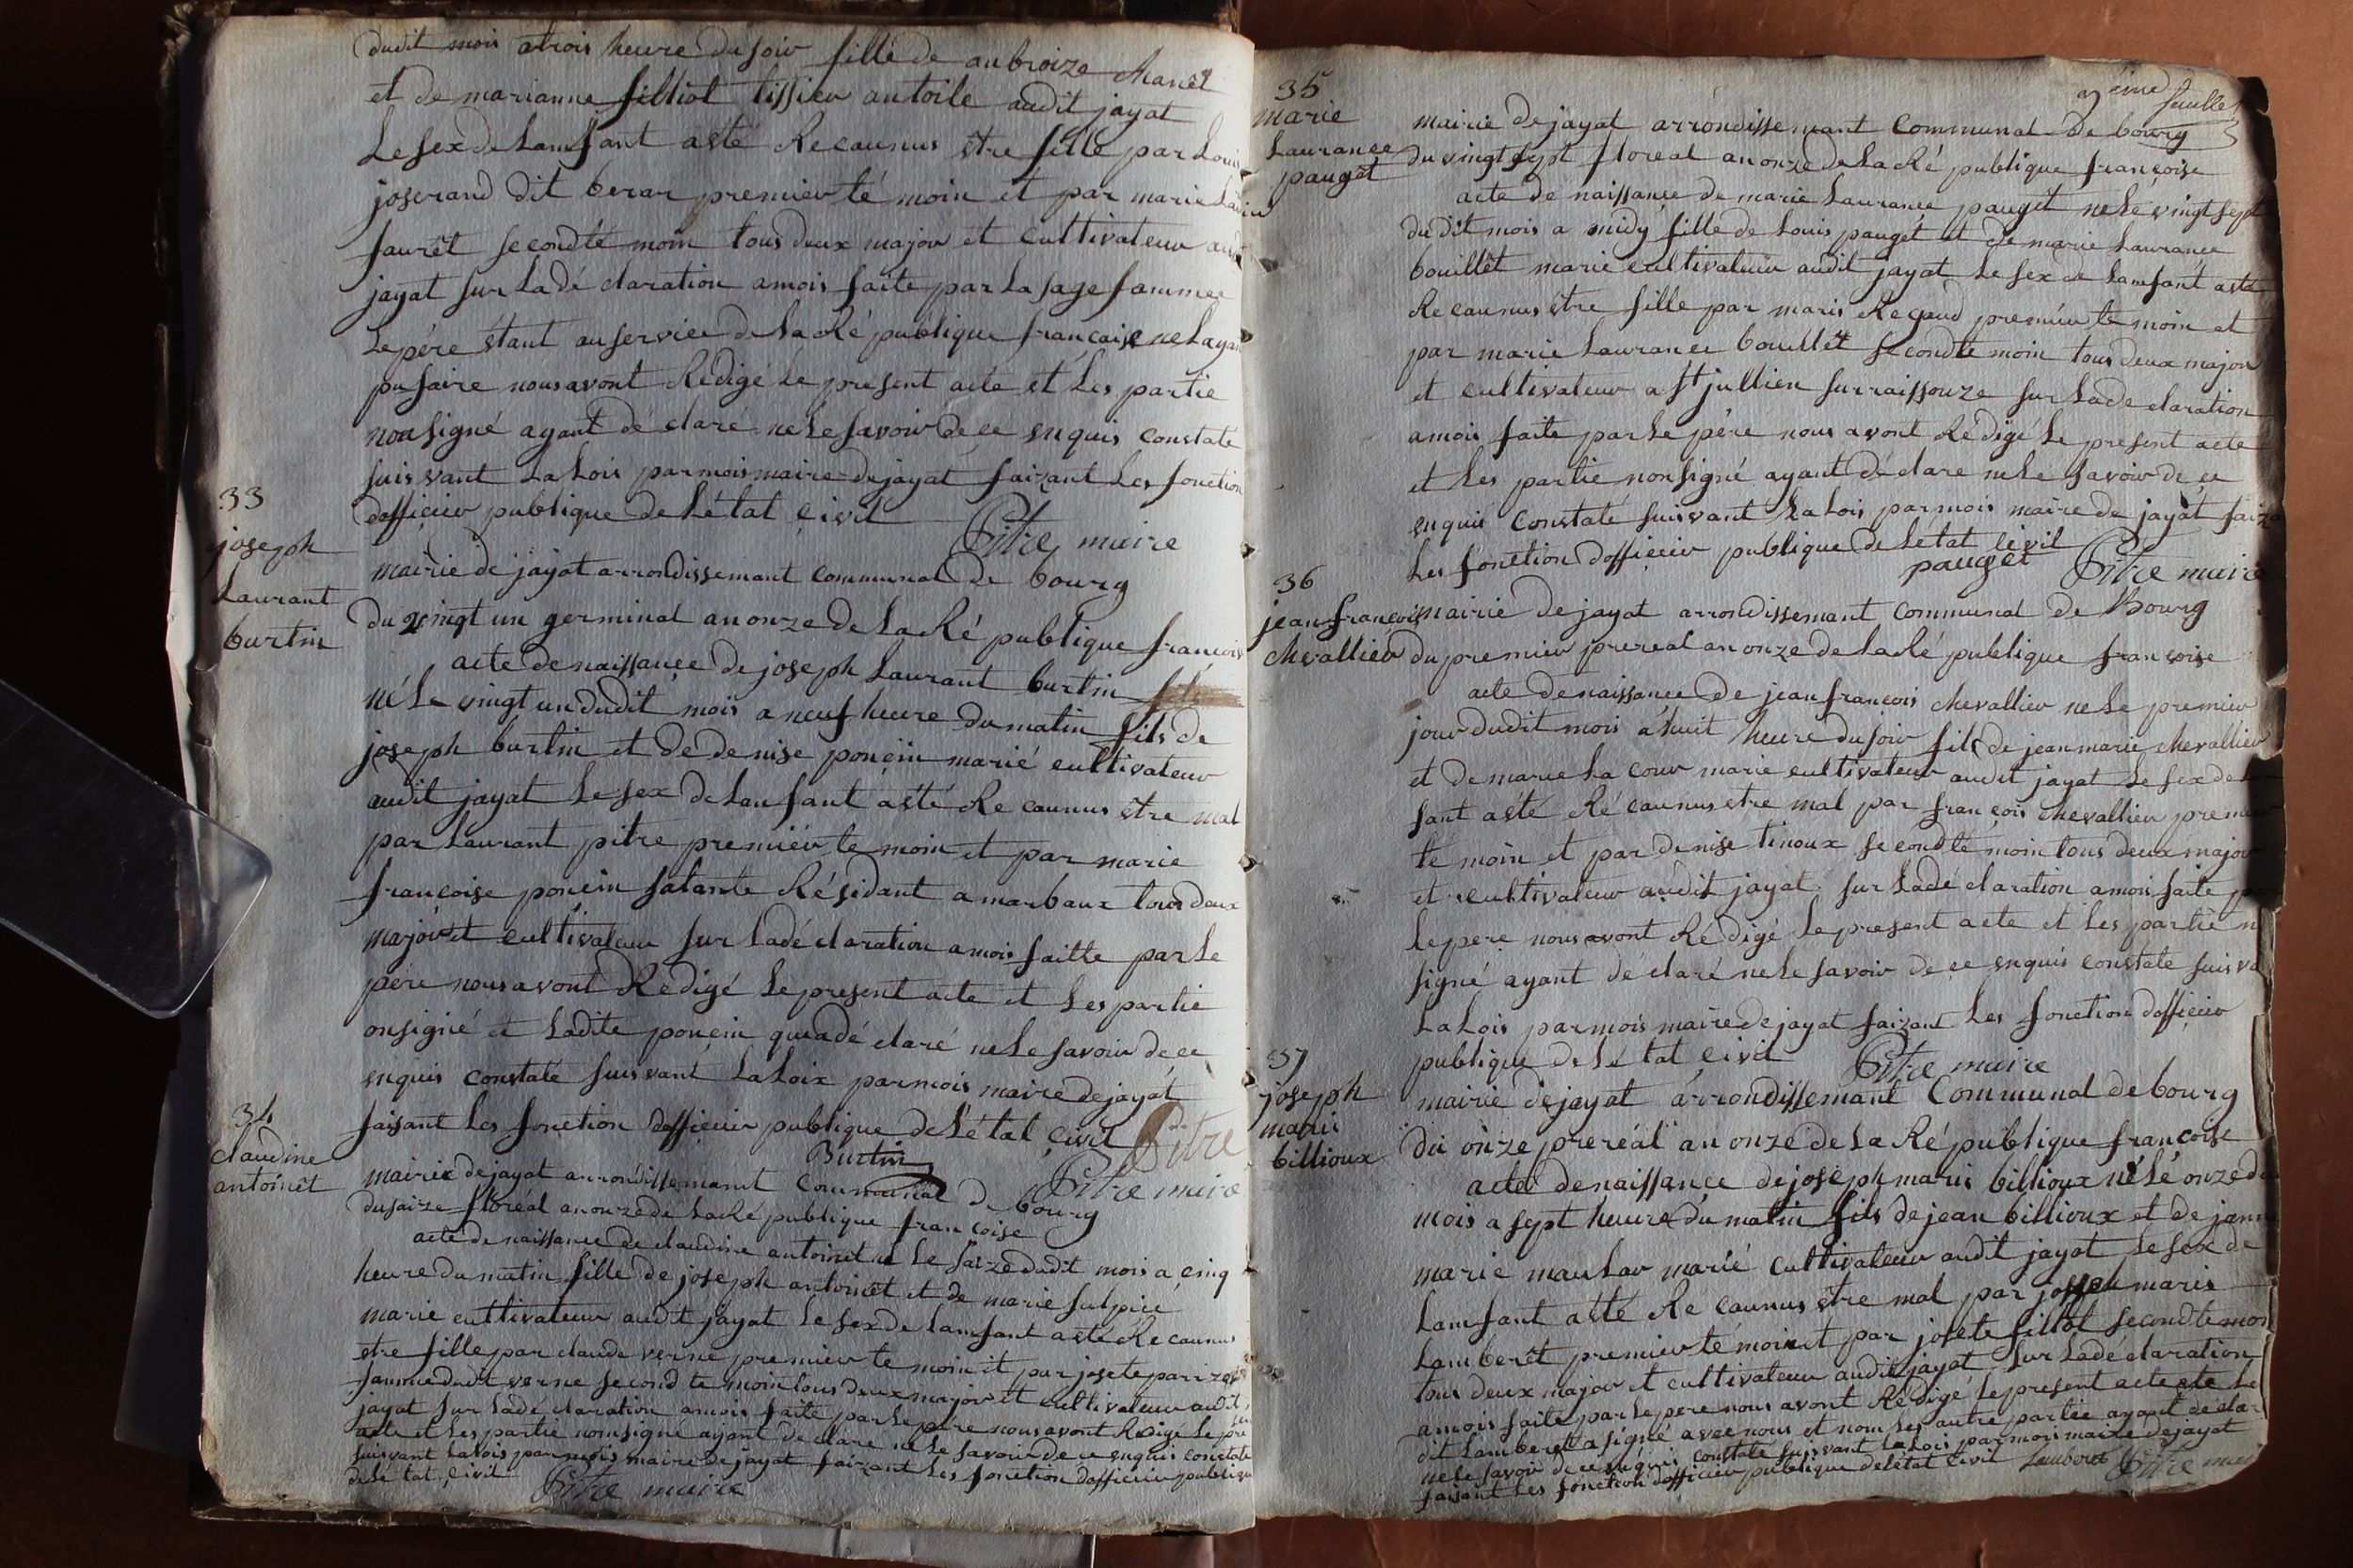 dudit mois atrois heure du soir fille de anbroize chanel
et de marianne filliol tissier antoile audit jayat
Le sex de Lanfant asté Recaunus être fille par Louis
joserand dit berar premier té moin et par marie
faurêt secondté moin tous deux major et cultivateur
jayat sur La dé claration a mois faite par La sage fammee
Le pére êtant au service de La Ré publique francaise ne Layan
pu faire nous avont Redigé Le present acte et Les partie
non signé ayant dé claré ne Le savoir de ce enquis constaté
suis vant La Lois par mois maire de jayat faizant Les fonction
dofficier publique de Lé tat çivil
Pitre maire
33
joseph
Laurant
burtin
mairie de jayat arrondissemant communal de bourg
du vingt un germinal an onze de La Ré publique francois
acte de naissançe de joseph Laurant burtin
né Le vingt un dudit mois a neuf heure du matin fils de
joseph burtin et de denise ponçin marié cultivateur
audit jayat Le sex de Lanfant asté Re caunus être mal
par Laurant pitre premiér te moin et par marie
francoise ponçin satante Résidant a marbaux tous deux
major et cultivateur sur Ladé claration a mois faitte par Le
pére nous avont Redigé Le present acte et Les partie
onsigné et Ladite ponçin quea dé claré ne Le savoir de ce
enquis constaté suis vant La Loix par mois maire de jayat
faisant Les fonction dofficier publique de Lé tat çivil Pitre
Burtin
Pitre maire
34
claudine
antoinêt
mairie de jayat arrondissemant communal de bourg
du saize floréal an onze de La Ré publique francoise
acte de naissance de claudine antoinet né Le saize dudit mois a çinq
heure du matin fille de joseph antoinet et de marie sulpice
marie cultivateur audit jayat Le sex de Lanfant asté Re caunus
etre fille par claude verne premier te moin et par josete parizet
famme dudit verne second te moin tous deux major et cultivateur audit
jayat sur Ladé claration amois faite par Le pére nous avont Rédigé Le pre
acte et Les partie nonsigné ayant dé clare ne Le savoir de ce enquis constaté
suis vant La Lois par mois maire de jayat faizant Les fonction dofficier publique
de Lé tat çivil Pitre maire
9 éme feuillet
35
marie
Laurance
paugêt
mairie de jayat arrondissemant communal de bourg
du vingt sept floreal an onze de La Ré publique françoise
acte de naissance de marie Laurance paugêt ne Le vingt sept
du dit mois a midy fille de Louis paugét et de marie Laurance
bouillêt marie cultivateur audit jayat Le sex de Lanfant asté
Re caunus être fille par maris Regaud premier te moin et
par marie Laurance bouillêt secondte moin tous deux major
et cultivateur a St jullien surraissouze sur La de claration
amois faite par Le pére nous avont Rédigé Le present acte
et Les partie nonsigné ayant dé clare ne Le savoir de ce
enquis constaté suis vant La Lois par mois maire de jayat faiza
Les fonction dofficier publique de Létat çivil
pauget Pitre maire
36
jean francois
chevallier
mairie de jayat arrondissemant communal de Bourg
du premier prereal an onze de La Ré publique francoise
acte denaissance de jean francois chevallier ne Le premier
jour dudit mois a huit heure du soir fils de jean marie chevallier
et de marie La cour marie cultivateur audit jayat Le sex de
fant asté Ré caunus etre mal par francois chevallier premier
té moin et par denise tinoux secondté moin tous deux major
et cultivateur audit jayat sur Ladé claration amois faite
Le pere nous avont Ré digé Le present acte et Les partie
signé ayant dé claré ne Le savoir de ce enquis constate suis va
La Lois par mois maire de jayat faizant Les fonction dofficier
publique de Lé tat çivil Pitre maire
37
joseph
maris
billioux
mairie de jayat arrondissemant Communal de bourg
du onze preréal an onze de La Ré publique francoise
acte denaissance de joseph maris billioux né Lé onze du
mois a sept heure du matin fils de jean billioux et de jann
marie maular marié cultivateur audit jayat Le sex de
Lanfant asté Re caunus être mal par joseph maris
Lamberêt premier té moin et par josete filliol secondtemoi
tous deux major et cultivateur audit jayat sur Ladé claration
amois faite par Le pere nous avont Rédigé Le present acte Le
dit Lamberêt a signé avec nous et nom Les autre partie ayant dé cla
ne Le savoir de ce enquis constate suis vant La Lois par mois maire de jayat
faisant Les fonction dofficier publique de Létat civil Lamberet Pitre maire